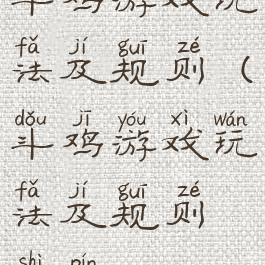 斗鸡游戏玩
fǎ jí guī zé
法及规则（
dǒu jī yóu xì wán
斗鸡游戏玩
fǎ jí guī zé
法及规则
shì pín